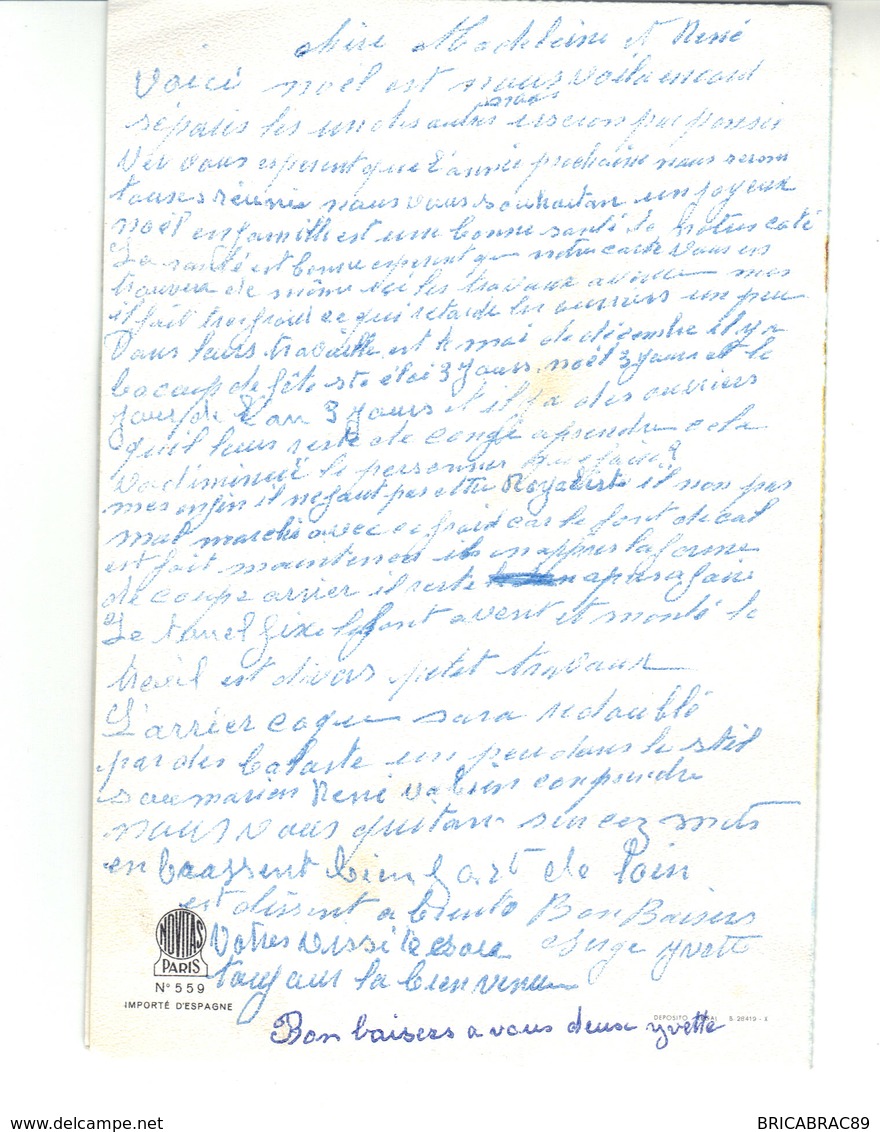 chère Madeleine et René
Voici noël est nous voila encord
séparés les un des autres
Vér vous esperent que l'année prochaine nous seront
touses réunie nous vous souhaitan un joyeux
noël en famille est une bonne santé de notres coté
La santé est bonne esperent que notre carte vous en
trouvera de même ici les travaux avence mes
il fait trop froid ce qui retarde les ouvriers un peu
Dans leurs travaille est le moi de décembre il y a
bocoup de fête ste éloi 3 jours noël 3 jours et le
jour de l'an 3 jours et il y a des ouvriers
qu'il leurs reste de congé aprendre cela
va diminuë le personnel
mes enfin il ne faut pas être Royaliste il non pas
mal marché avec ce froid car le font de cal
est fait maintenent ils
de coupe arrier il reste apres a faire
Le tunel fixe le font avent et monté le
treuil est divers petit travaux
L'arrier coque sera redoublé
par des balaste un peu dans le stil
soumarien René va bien conprendre
nous vous quitan sur cez mots
en brassent bien fort de loin
est dissent a biento Bon Baisers
Votres vissite sera Serge Yvette
toujours la bienvenue
Bon baisers a vous deux yvette
NOVITAS
PARIS
N° 559
IMPORTÉ D'ESPAGNE
DEPOSITO LEGAL S. 28419 - X
BRICABRAC89
www.delcampe.net